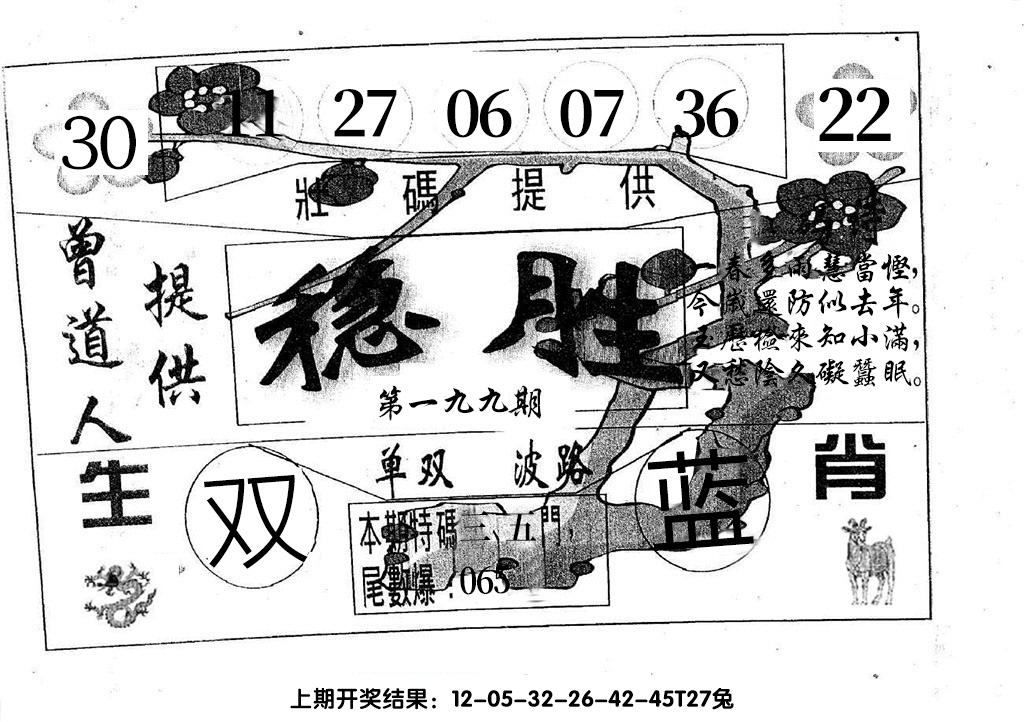 30 11 27 06 07 36 22
壯碼提供
特
曾道人
提供
稳胜
第一九九期
春多雨慧當慳,
今歲還防似去年。
玉歷檢來知小滿,
又愁陰久礙蠶眠。
单双 波路
生肖
双
蓝
本期特碼三、五門,
尾數爆:065
上期开奖结果:12-05-32-26-42-45T27兔